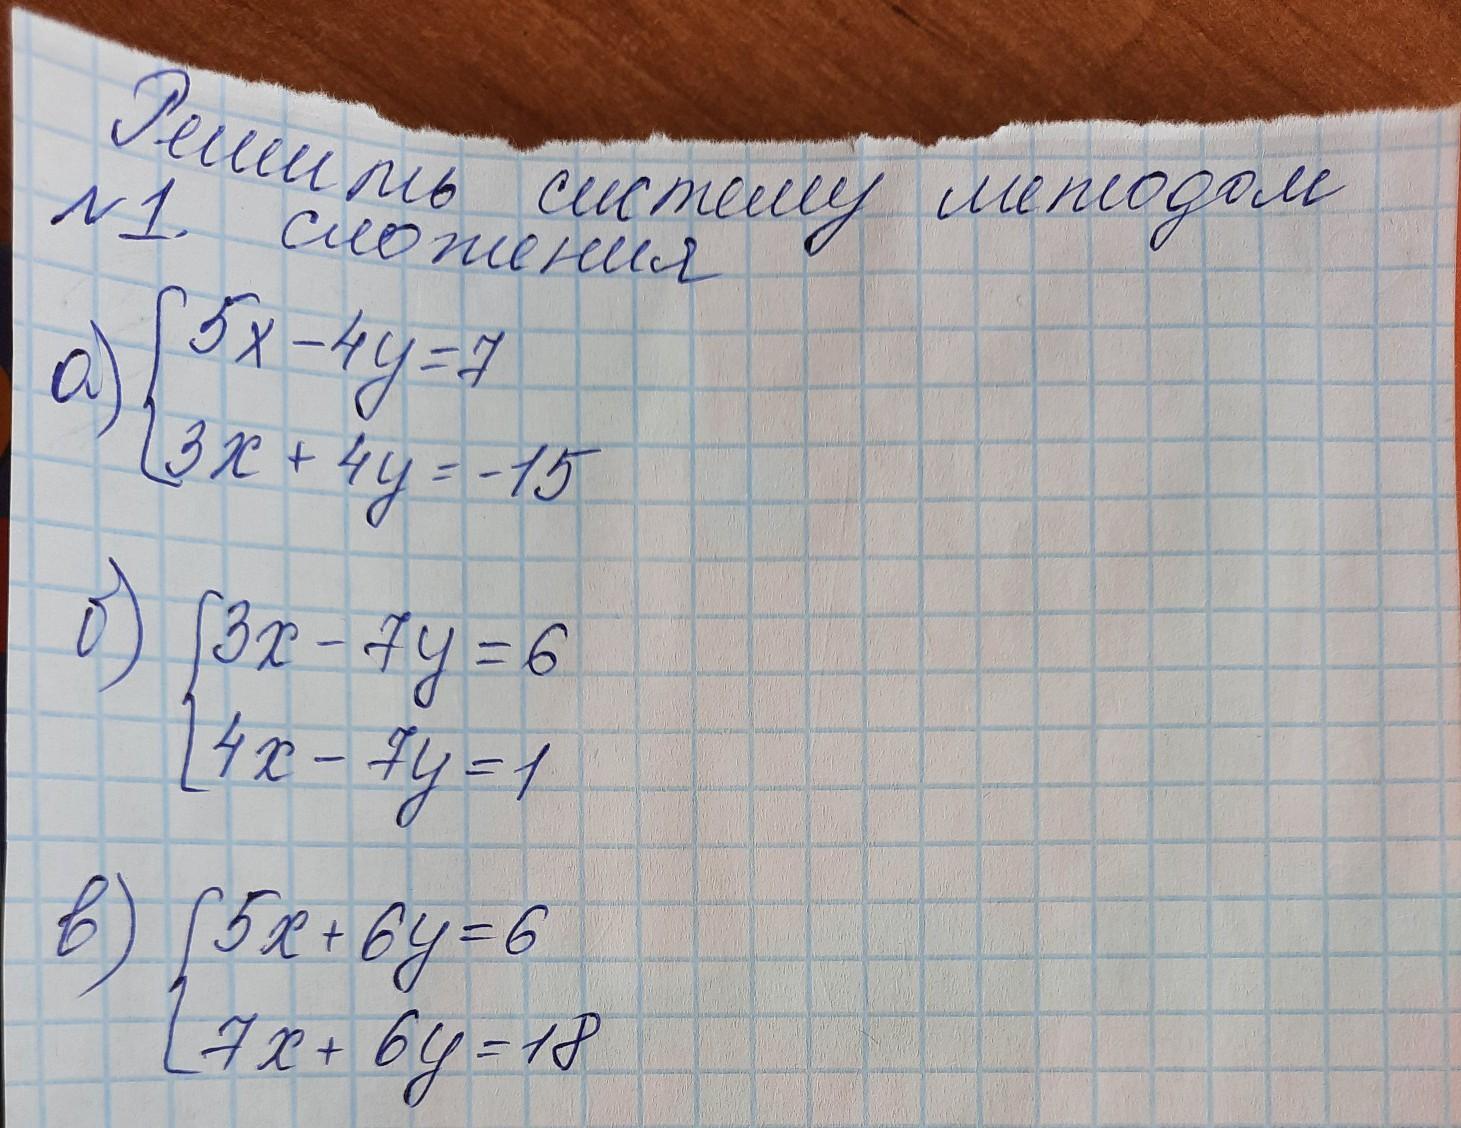 Решить систему методом
№1. сложения
а) { 5x - 4y = 7
3x + 4y = -15
б) { 3x - 7y = 6
4x - 7y = 1
в) { 5x + 6y = 6
7x + 6y = 18